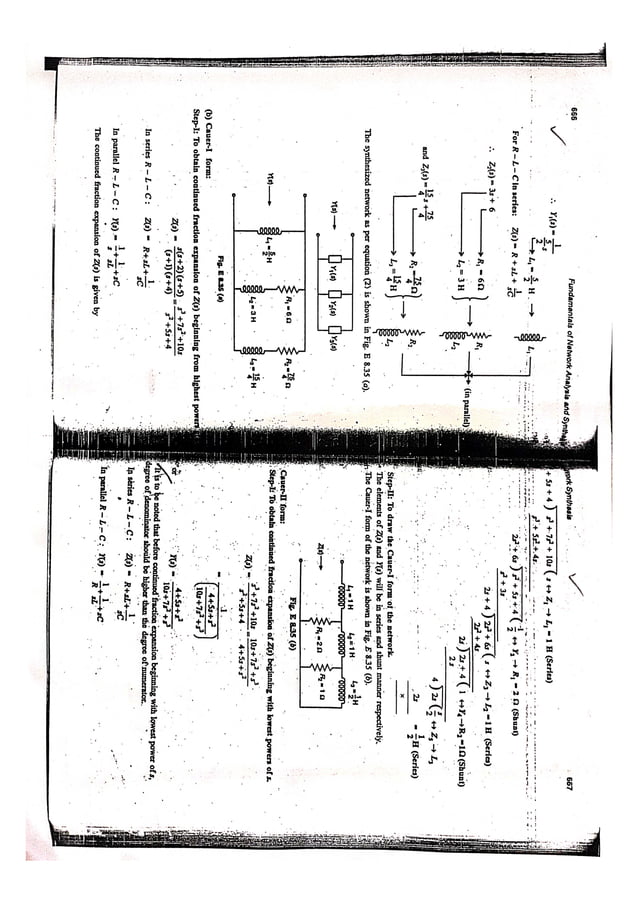 666
Fundamentals of Network Analysis and Synthesis
∴ Y₁(s) = 1 / (5/2 s) → L₁ = 5/2 H → L₁
For R – L – C in series: Z(s) = R + sL + 1/sC
∴ Z₂(s) = 3s + 6
R₁ = 6Ω
L₂ = 3 H
R₁
L₂
(in parallel)
and Z₃(s) = 15/4 s + 75/4
R₂ = 75/4 Ω
L₃ = 15/4 H
R₂
L₃
The synthesized network as per equation (2) is shown in Fig. E 8.35 (a).
Y(s)
Y₁(s) Y₂(s) Y₃(s)
Y(s)
L₁ = 5/2 H
R₁ = 6 Ω
L₂ = 3 H
R₂ = 75/4 Ω
L₃ = 15/4 H
Fig. E 8.35 (a)
(b) Cauer-I form:
Step-I: To obtain continued fraction expansion of Z(s) beginning from highest powers
Z(s) = s(s+2)(s+5) / (s+1)(s+4) = s³+7s²+10s / s²+5s+4
In series R – L – C : Z(s) = R+sL+ 1/sC
In parallel R – L – C : Y(s) = 1/R + 1/sL + sC
The continued fraction expansion of Z(s) is given by
Synthesis
667
+ 5s + 4 ) s³ + 7s² + 10s ( s ↔ Z₁ → L₁ = 1 H (Series)
s³ + 5s² + 4s
2s² + 6s ) s² + 5s + 4 ( 1/2 ↔ Y₂ → R₁ = 2 Ω (Shunt)
s² + 3s
2s + 4 ) 2s² + 6s ( s ↔ Z₃ → L₂ = 1H (Series)
2s² + 4s
2s ) 2s + 4 ( 1 ↔ Y₄ → R₂ = 1Ω (Shunt)
2s
4 ) 2s ( s/2 ↔ Z₅ → L₃
2s = 1/2 H (Series)
×
Step-II: To draw the Cauer-I form of the network.
The elements of Z(s) and Y(s) will be in series and shunt manner respectively.
The Cauer-I form of the network is shown in Fig. E 8.35 (b).
L₁ = 1 H L₂ = 1H L₃ = 1/2 H
Z(s)
R₁ = 2 Ω R₂ = 1 Ω
Fig. E 8.35 (b)
Cauer-II form:
Step-I: To obtain continued fraction expansion of Z(s) beginning with lowest powers of s.
Z(s) = s³+7s²+10s / s²+5s+4 = 10s+7s²+s³ / 4+5s+s²
= 1 / (4+5s+s² / 10s+7s²+s³)
or
Y(s) = 4+5s+s² / 10s+7s²+s³
It is to be noted that before continued fraction expansion beginning with lowest power of s,
degree of denominator should be higher than the degree of numerator.
In series R – L – C : Z(s) = R+sL+ 1/sC
In parallel R – L – C : Y(s) = 1/R + 1/sL + sC